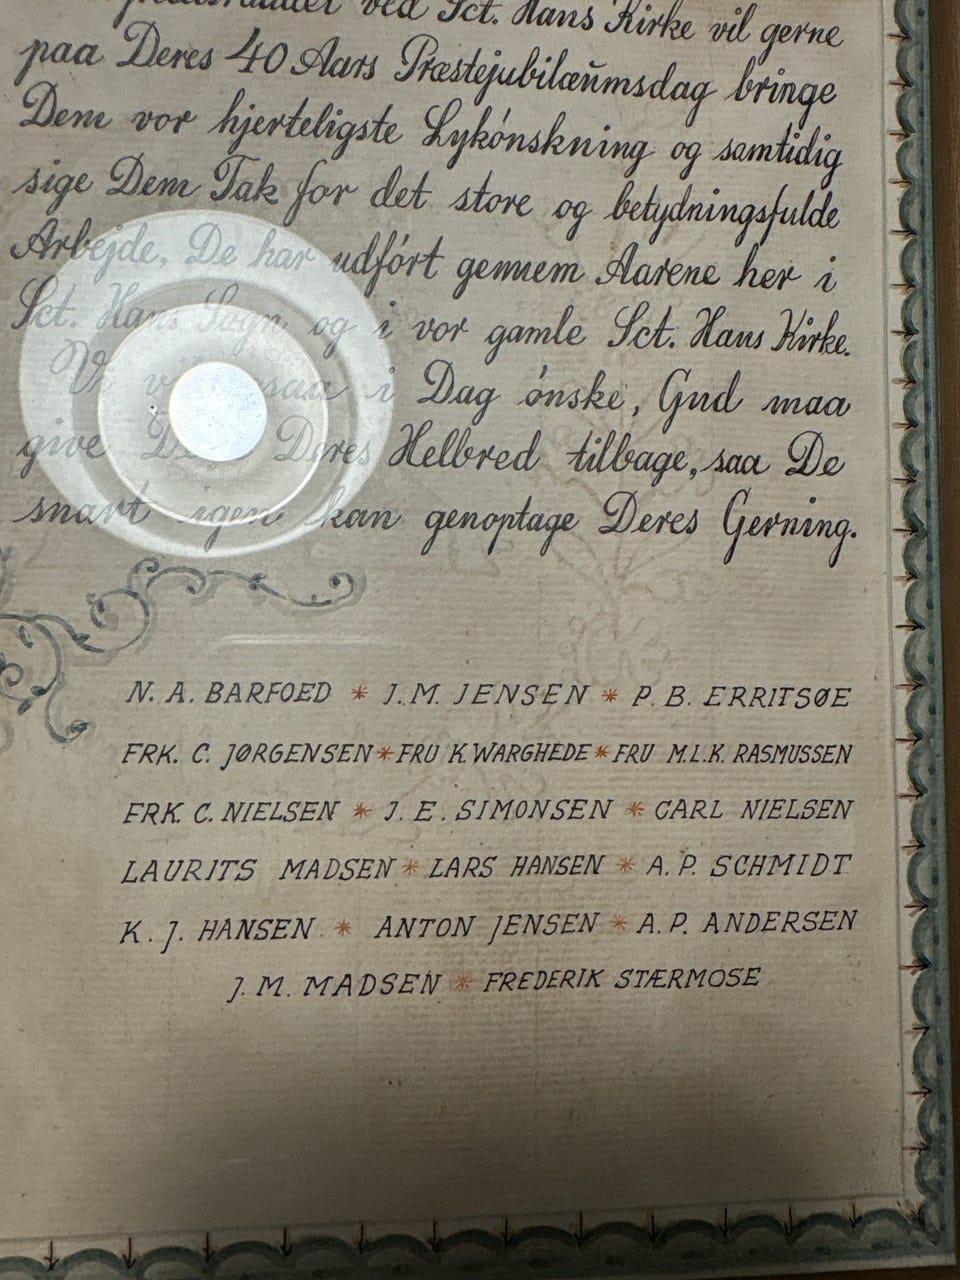 ved Sct. Hans Kirke vil gerne
paa Deres 40 Aars Præstejubilæumsdag bringe
Dem vor hjerteligste Lykónskning og samtidig
sige Dem Tak for det store og betydningsfulde
Arbejde, De har udfórt gennem Aarene her i
Sct. Hans Sogn og i vor gamle Sct. Hans Kirke.
Vi i Dag ónske, Gud maa
give Deres Helbred tilbage, saa De
snart igen kan genoptage Deres Gerning.
N. A. BARFOED * J. M. JENSEN * P. B. ERRITSØE
FRK. C. JØRGENSEN * FRU K. WARGHEDE * FRU M.L.K. RASMUSSEN
FRK. C. NIELSEN * J. E. SIMONSEN * CARL NIELSEN
LAURITS MADSEN * LARS HANSEN * A. P. SCHMIDT
K. J. HANSEN * ANTON JENSEN * A. P. ANDERSEN
J. M. MADSEN * FREDERIK STÆRMOSE